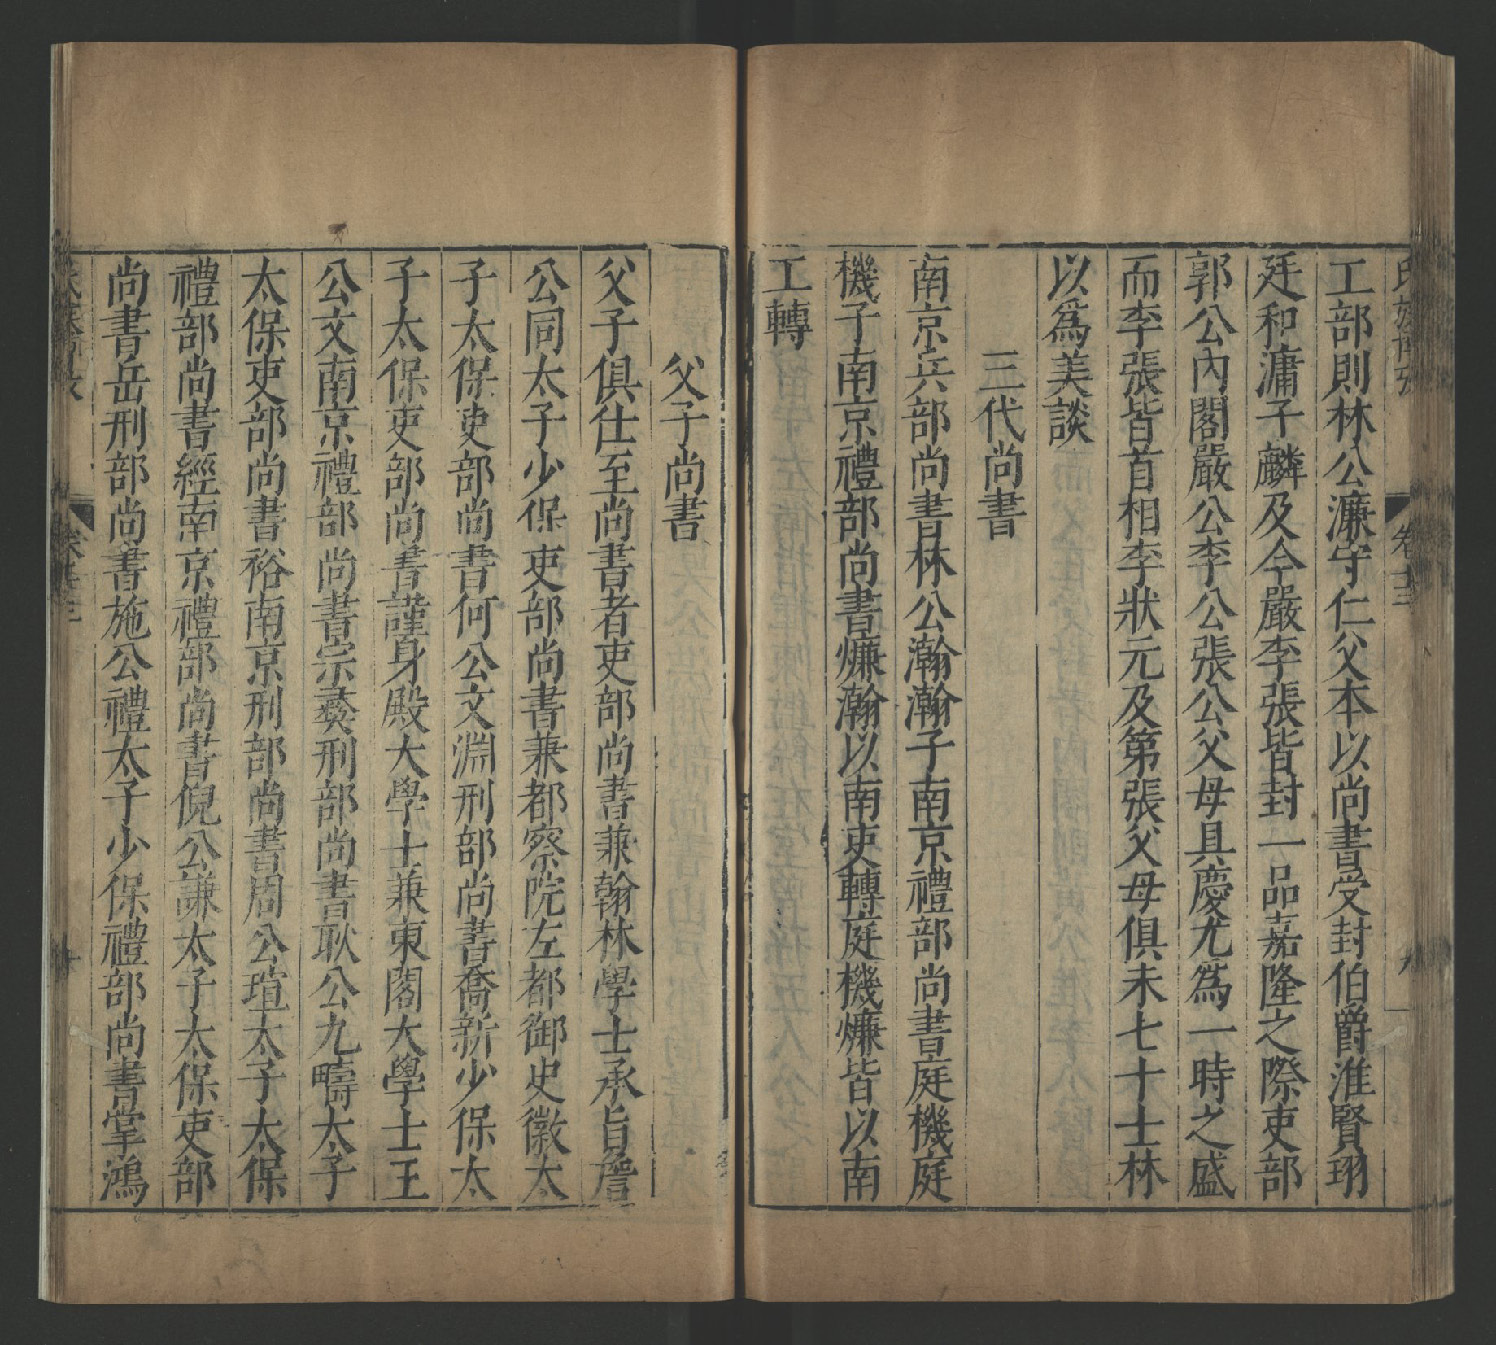 工部則林公濂守仁父本以尚書受封伯爵淮賢珝
廷和溥子麟及今嚴李張皆封一品嘉隆之際吏部
郭公內閣嚴公李公張公父母具慶尤為一時之盛
而李張皆首相李狀元及第張父母俱未七十士林
以為美談
三代尚書
南京兵部尚書林公瀚瀚子南京禮部尚書庭機庭
機子南京禮部尚書燫瀚以南吏轉庭機燫皆以南
工轉
父子尚書
父子俱仕至尚書者吏部尚書兼翰林學士承旨詹
公同太子少保吏部尚書兼都察院左都御史徽太
子太保吏部尚書何公文淵刑部尚書喬新少保太
子太保吏部尚書謹身殿大學士兼東閣大學士王
公文南京禮部尚書宗彝刑部尚書耿公九疇太子
太保吏部尚書裕南京刑部尚書周公瑄太子太保
禮部尚書經南京禮部尚書倪公謙太子太保吏部
尚書岳刑部尚書施公禮太子少保禮部尚書掌鴻